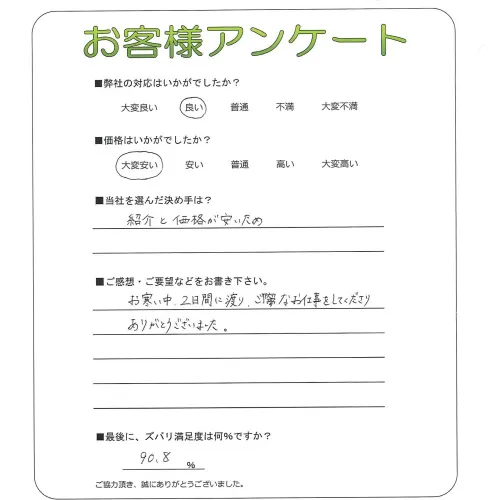 お客様アンケート
■弊社の対応はいかがでしたか？
大変良い 良い 普通 不満 大変不満
■価格はいかがでしたか？
大変安い 安い 普通 高い 大変高い
■当社を選んだ決め手は？
紹介と価格が安いため
■ご感想・ご要望などをお書き下さい。
お寒い中、2日間に渡り、ご丁寧なお仕事をしてくださり
ありがとうございました。
■最後に、ズバリ満足度は何％ですか？
90.8 ％
ご協力頂き、誠にありがとうございました。